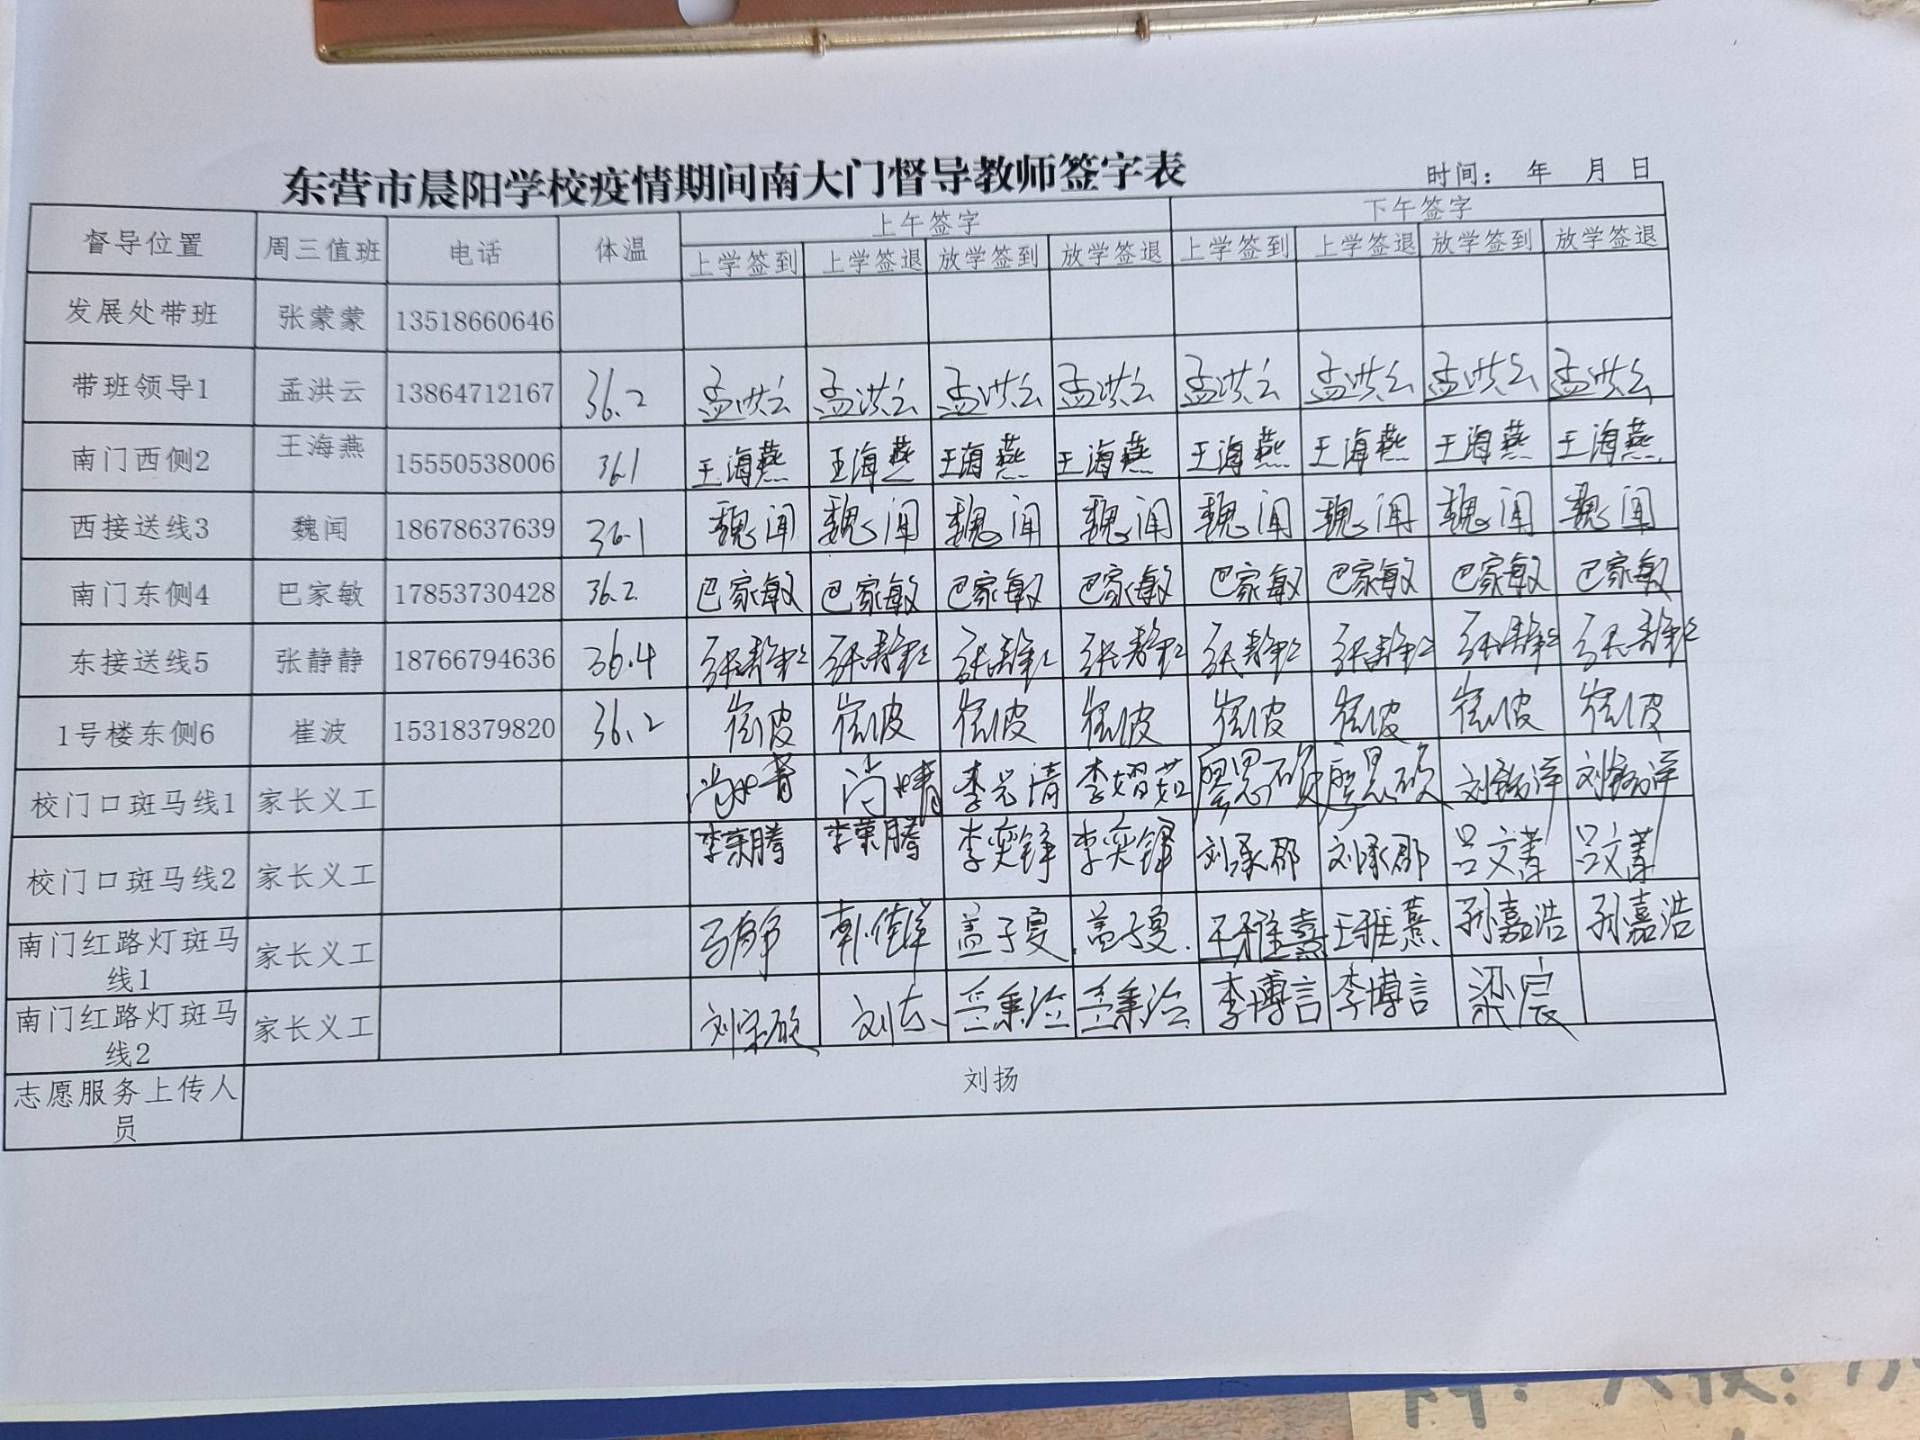 东营市晨阳学校疫情期间南大门督导教师签字表
时间： 年 月 日
督导位置 周三值班 电话 体温 上午签字 下午签字
上学签到 上学签退 放学签到 放学签退 上学签到 上学签退 放学签到 放学签退
发展处带班 张蒙蒙 13518660646
带班领导1 孟洪云 13864712167 36.2 孟洪云 孟洪云 孟洪云 孟洪云 孟洪云 孟洪云 孟洪云 孟洪云
南门西侧2 王海燕 15550538006 36.1 王海燕 王海燕 王海燕 王海燕 王海燕 王海燕 王海燕 王海燕
西接送线3 魏闻 18678637639 36.1 魏闻 魏闻 魏闻 魏闻 魏闻 魏闻 魏闻 魏闻
南门东侧4 巴家敏 17853730428 36.2 巴家敏 巴家敏 巴家敏 巴家敏 巴家敏 巴家敏 巴家敏 巴家敏
东接送线5 张静静 18766794636 36.4 张静2 张静2 张静2 张静2 张静2 张静2 张静2 张静2
1号楼东侧6 崔波 15318379820 36.2 崔波 崔波 崔波 崔波 崔波 崔波 崔波 崔波
校门口斑马线1 家长义工 尚婧 李允清 廖思硕 廖思硕
校门口斑马线2 家长义工 李荣腾 李荣腾 李奕铎 李奕铎 刘承郡 刘承郡 吕文菁 吕文菁
南门红路灯斑马
线1
家长义工 盖子夏 盖子夏 王雅熹 王雅熹 孙嘉浩 孙嘉浩
南门红路灯斑马
线2
家长义工 李博言 李博言 梁宸
志愿服务上传人
员
刘扬